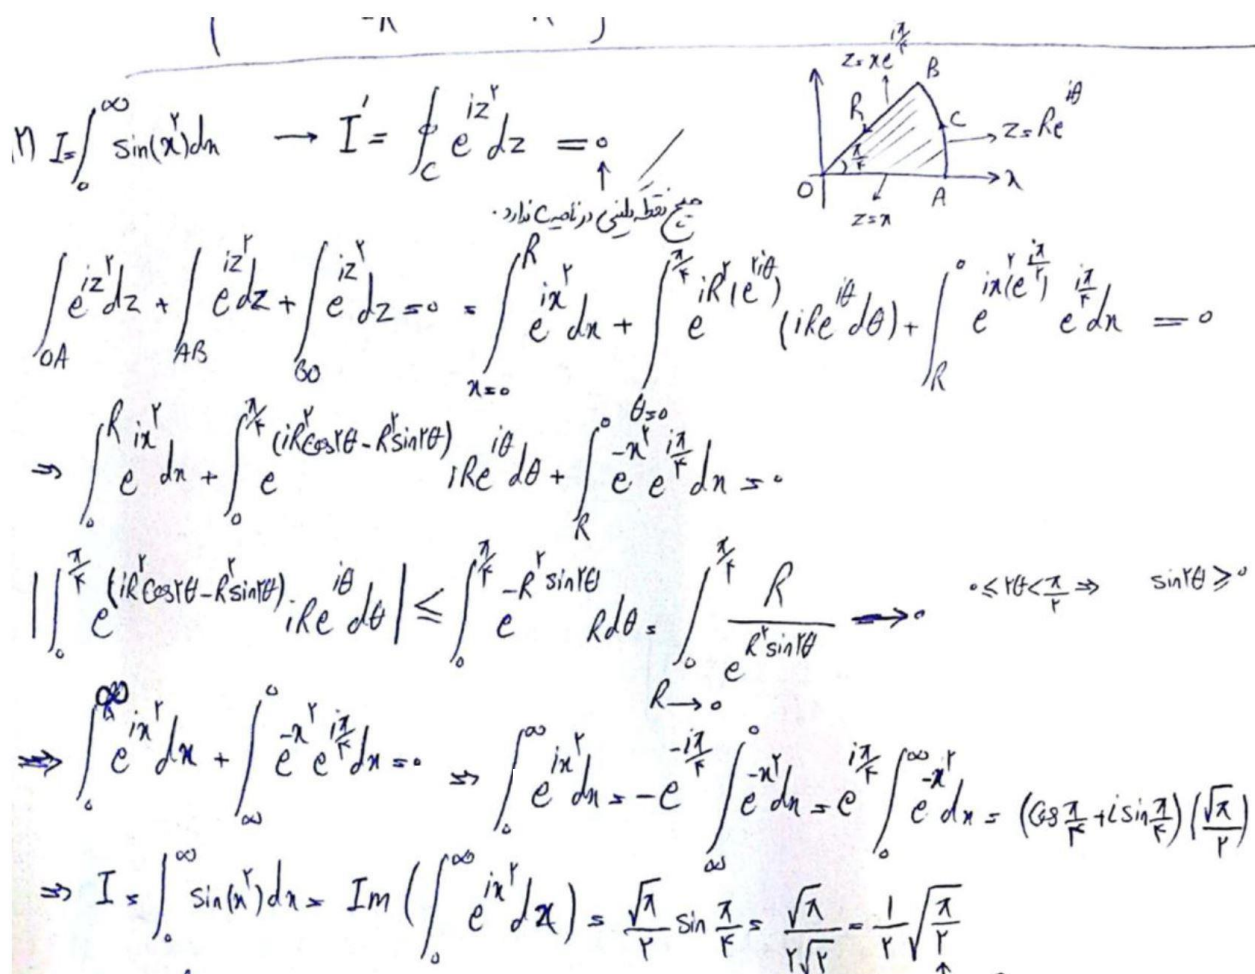 ۲) I = ∫₀^∞ sin(x^۲)dx → I' = ∮_C e^{iz^۲} dz = ۰
هیچ نقطه تکینی در ناحیه C ندارد.
z = xe^{iπ/۴} B
R C z = Re^{iθ}
π/۴
O A x
z = x
∫_{OA} e^{iz^۲} dz + ∫_{AB} e^{iz^۲} dz + ∫_{BO} e^{iz^۲} dz = ۰ = ∫_{x=۰}^{R} e^{ix^۲} dx + ∫_{θ=۰}^{π/۴} e^{iR^۲(e^{۲iθ})} (iRe^{iθ}dθ) + ∫_R^۰ e^{ix^۲(e^{iπ/۲})} e^{iπ/۴} dx = ۰
⇒ ∫_۰^R e^{ix^۲} dx + ∫_۰^{π/۴} e^{(iR^۲cos۲θ - R^۲sin۲θ)} iRe^{iθ} dθ + ∫_R^۰ e^{-x^۲} e^{iπ/۴} dx = ۰
|∫_۰^{π/۴} e^{(iR^۲cos۲θ - R^۲sin۲θ)} iRe^{iθ} dθ| ≤ ∫_۰^{π/۴} e^{-R^۲sin۲θ} Rdθ = ∫_۰^{π/۴} R/e^{R^۲sin۲θ} → ۰ ۰ ≤ ۲θ < π/۲ ⇒ sin۲θ ≥ ۰
R → ۰
⇒ ∫_۰^∞ e^{ix^۲} dx + ∫_∞^۰ e^{-x^۲} e^{iπ/۴} dx = ۰ ⇒ ∫_۰^∞ e^{ix^۲} dx = -e^{-iπ/۴} ∫_∞^۰ e^{-x^۲} dx = e^{iπ/۴} ∫_۰^∞ e^{-x^۲} dx = (Cos π/۴ + i sin π/۴)(√π/۲)
⇒ I = ∫_۰^∞ sin(x^۲)dx = Im(∫_۰^∞ e^{ix^۲} dx) = √π/۲ sin π/۴ = √π/۲√۲ = ۱/۲ √(π/۲)